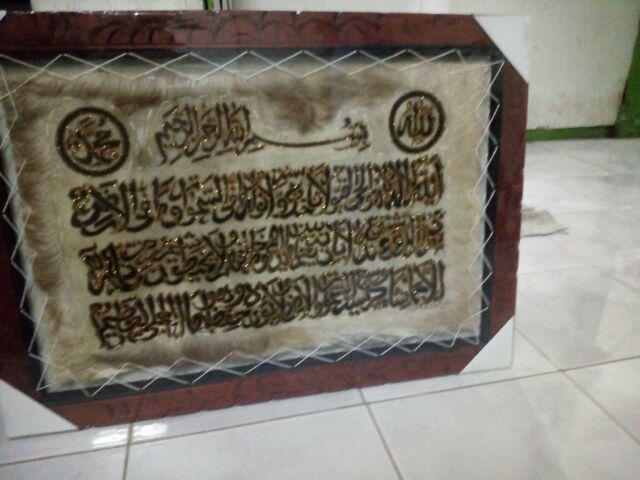 الله
بسم الله الرحمن الرحيم
محمد
الله لا إله إلا هو الحي القيوم لا تأخذه سنة ولا نوم له ما في السموات وما في الأرض
من ذا الذي يشفع عنده إلا بإذنه يعلم ما بين أيديهم وما خلفهم ولا يحيطون بشيء من علمه
إلا بما شاء وسع كرسيه السموات والأرض ولا يؤده حفظهما وهو العلي العظيم